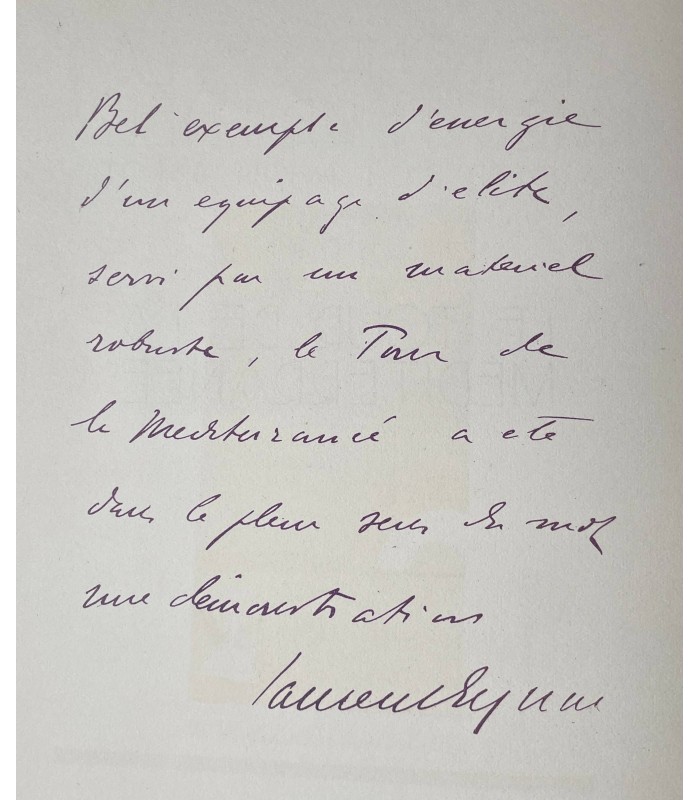 Bel exemple d'energie
d'un equipage d'elite,
servi par un materiel
robuste, le Tour de
la Mediterranée a ete
dans le plein sens du mot
une démonstration